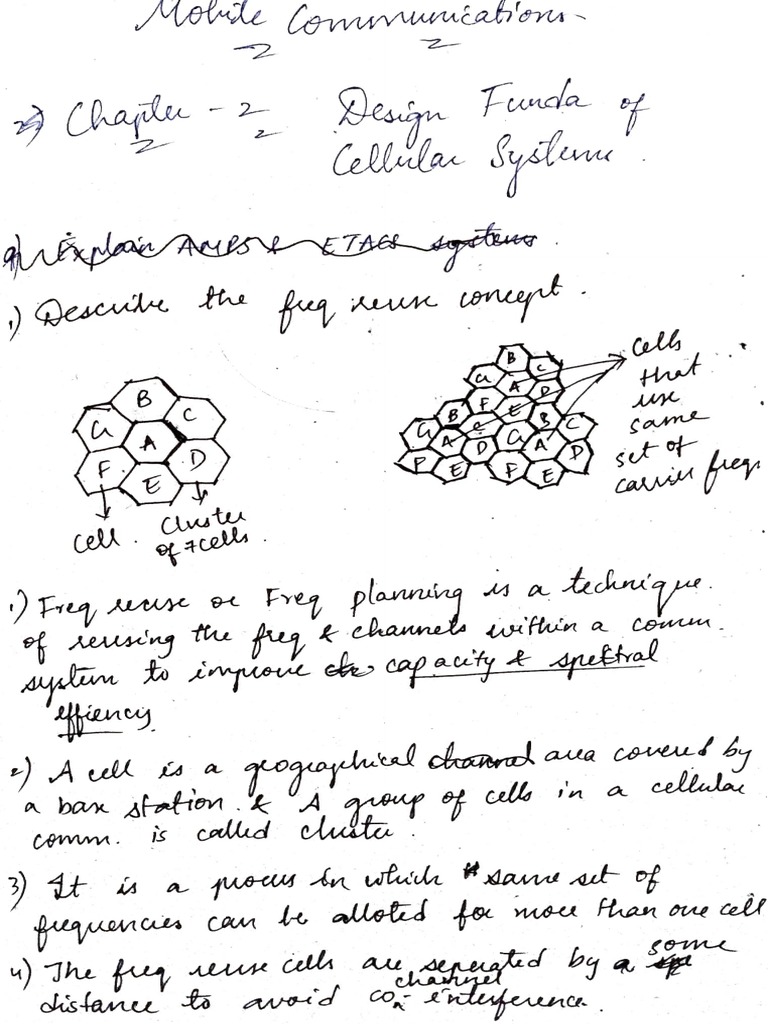 Mobile Communications-
Chapter - 2 Design Funda of
Cellular Systems.
q) Explain AMPS & ETACS systems.
1) Describe the freq reuse concept.
B
G C
A
F D
E
Cell.
Cluster
of 7 cells.
B
G C
A
F D
B E B
G C G C
A A
F D F D
E E
Cells
that
use
same
set of
carrier freq.
1) Freq reuse or Freq planning is a technique.
of reusing the freq & channels within a comm.
system to improve capacity & spektral
effiency.
2) A cell is a geographical channel area covered by
a base station. & A group of cells in a cellular
comm. is called cluster.
3) It is a process in which same set of
frequencies can be alloted for more than one cell
4) The freq reuse cells are seperated by a some
distance to avoid co-channel interference.